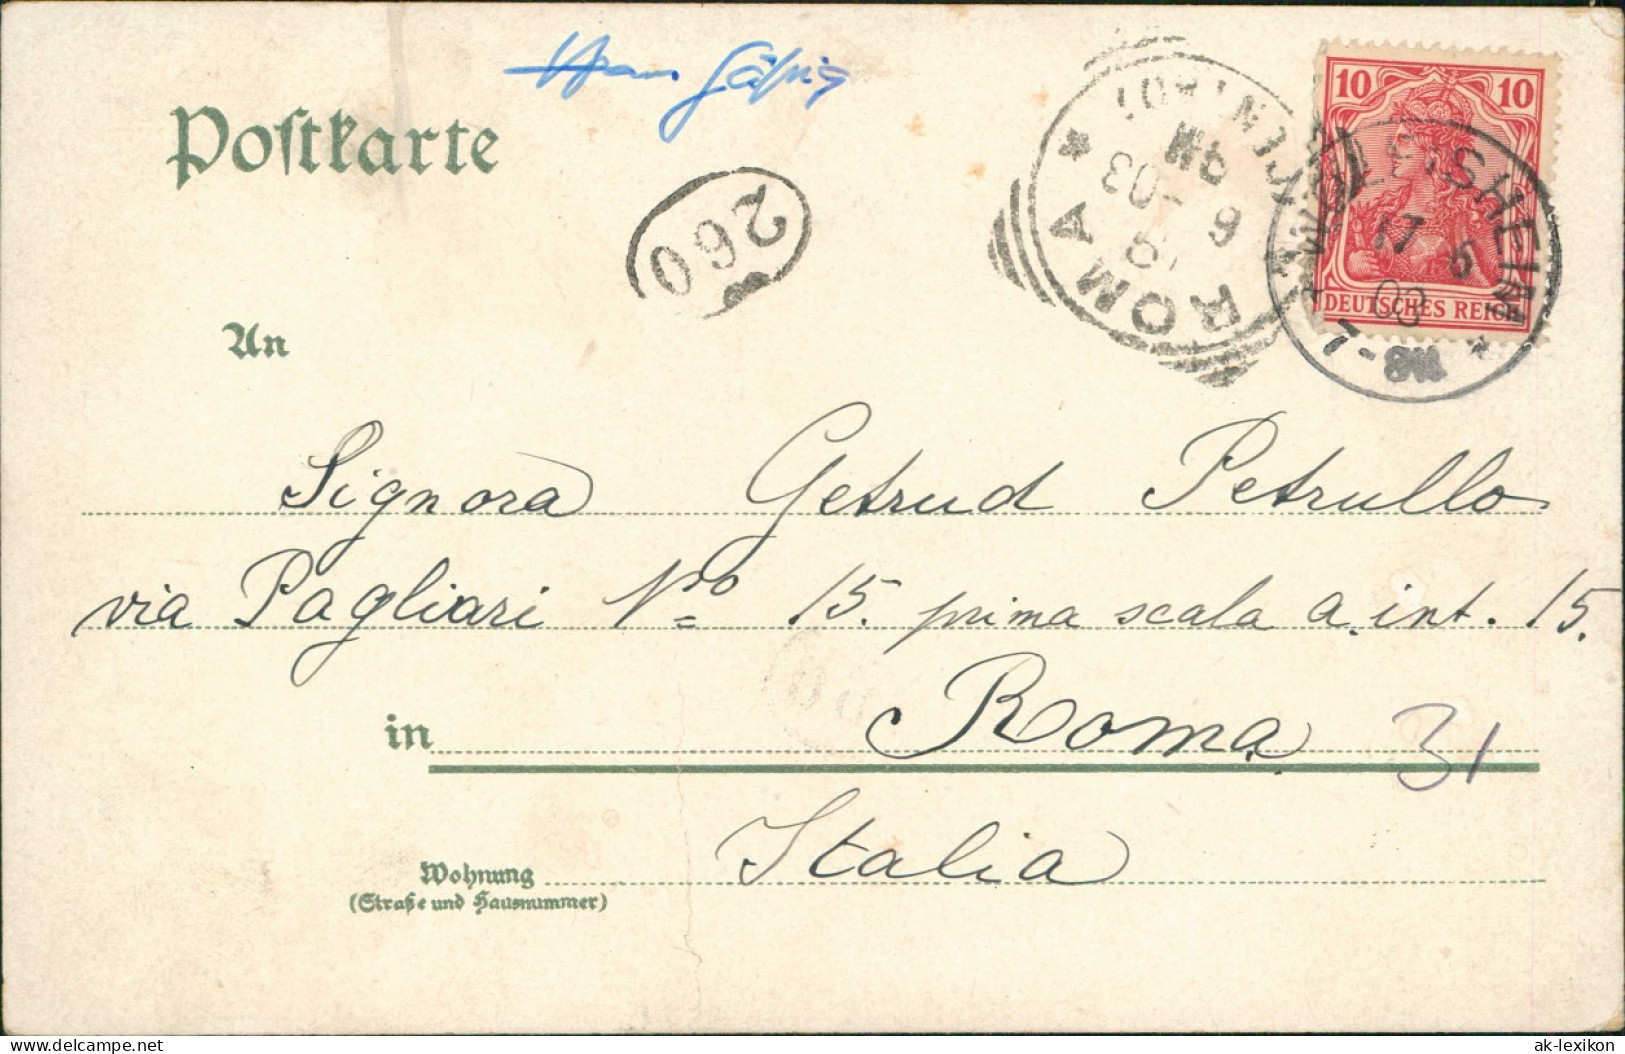 Postkarte
260
ROMA
9M
6
03
10 10
DEUTSCHES REICH
17 5
03
7-8N
An
Signora Getrud Petrullo
via Pagliari No 15. prima scala a. int. 15.
in Roma
31
Italia
Wohnung
(Straße und Hausnummer)
delcampe.net
ak-lexikon